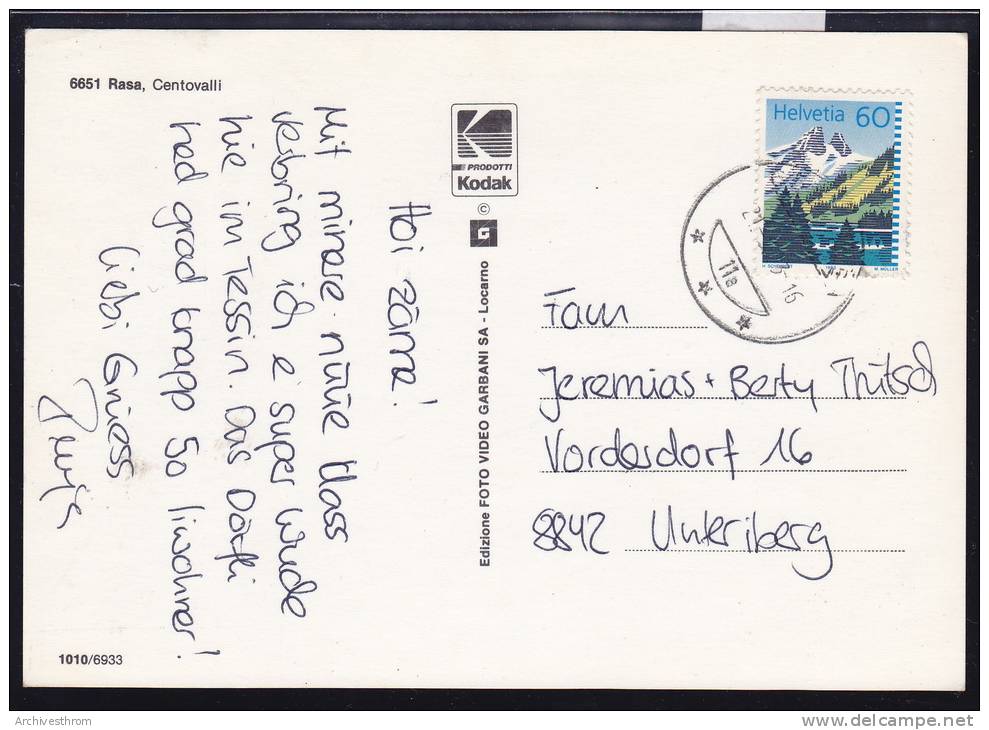 6651 Rasa, Centovalli
K
PRODOTTI
Kodak
©
Edizione FOTO VIDEO GARBANI SA - Locarno
Helvetia 60
11a
Hoi zäma!
Mit minare nüüe Klass
verbring ich e super Wuche
hie im Tessin. Das Dörfli
hed grad knapp 50 Iiwohner!
Liebi Grüess
Fam
Jeremias + Berty Thütsch
Vorderdorf 16
8842 Unteriberg
1010/6933
Archivesthrom
delcampe.net